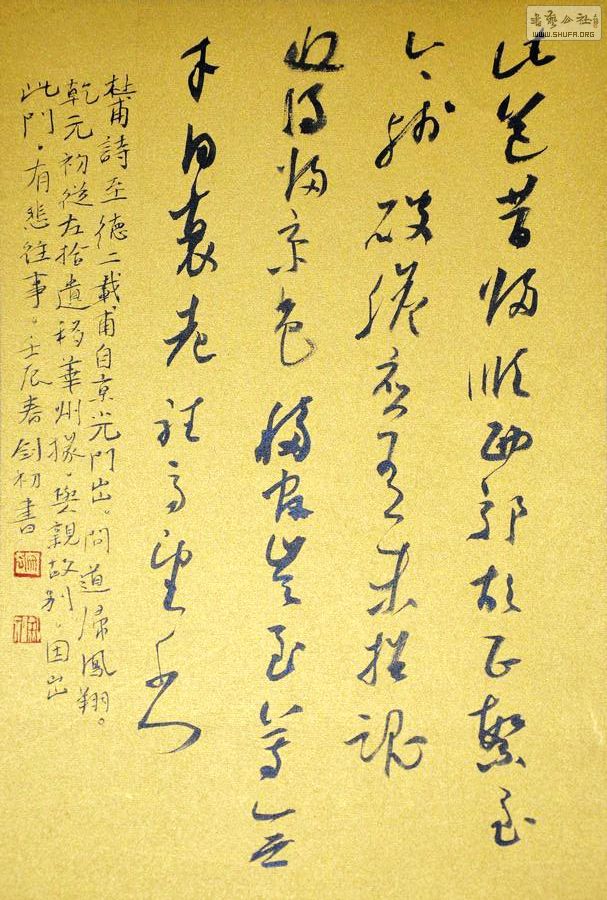 此道昔歸順西郊胡正繁至
今殘破膽應有未招魂
近得歸京邑移官豈至尊無
才日衰老駐馬望千門
杜甫詩至德二載甫自京光門出。問道歸鳳翔。
乾元初從左拾遺移華州掾。與親故別。因出
此門。有悲往事。壬辰春剑初書
書藝公社
WWW.SHUFA.ORG